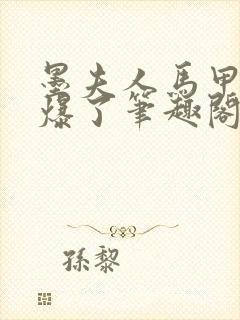 墨夫人馬甲
爆了筆趣閣
孫黎